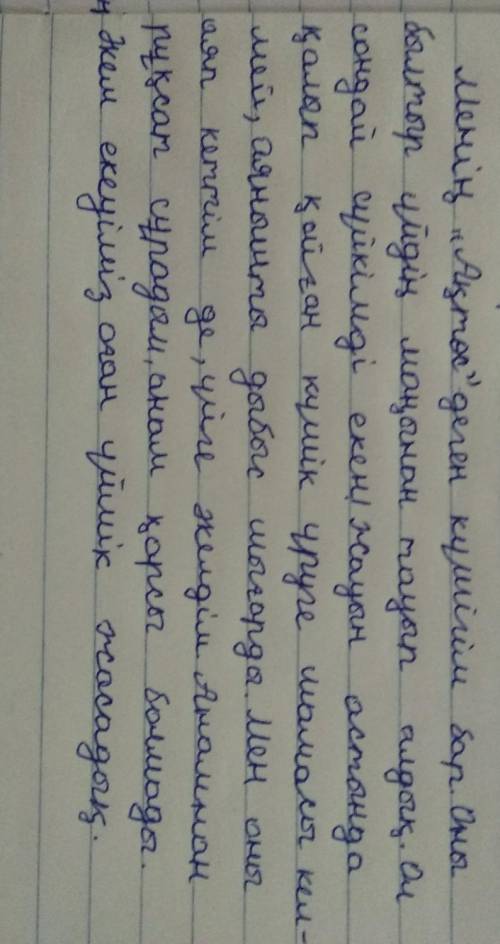 Менің „Ақтөс" деген күшігім бар. Оны
былтыр үйдің маңынан тауып алдық. Ол
сондай сүйкімді екен! Жауын астында
қалып қойған күшік үруге шамасы кел-
мей, аянышты дыбыс шығарды. Мен оны
аяп кеттім де, үйге әкелдім. Анамнан
рұқсат сұрадым, анам қарсы болмады.
Әкем екеуіміз оған үйшік жасадық.